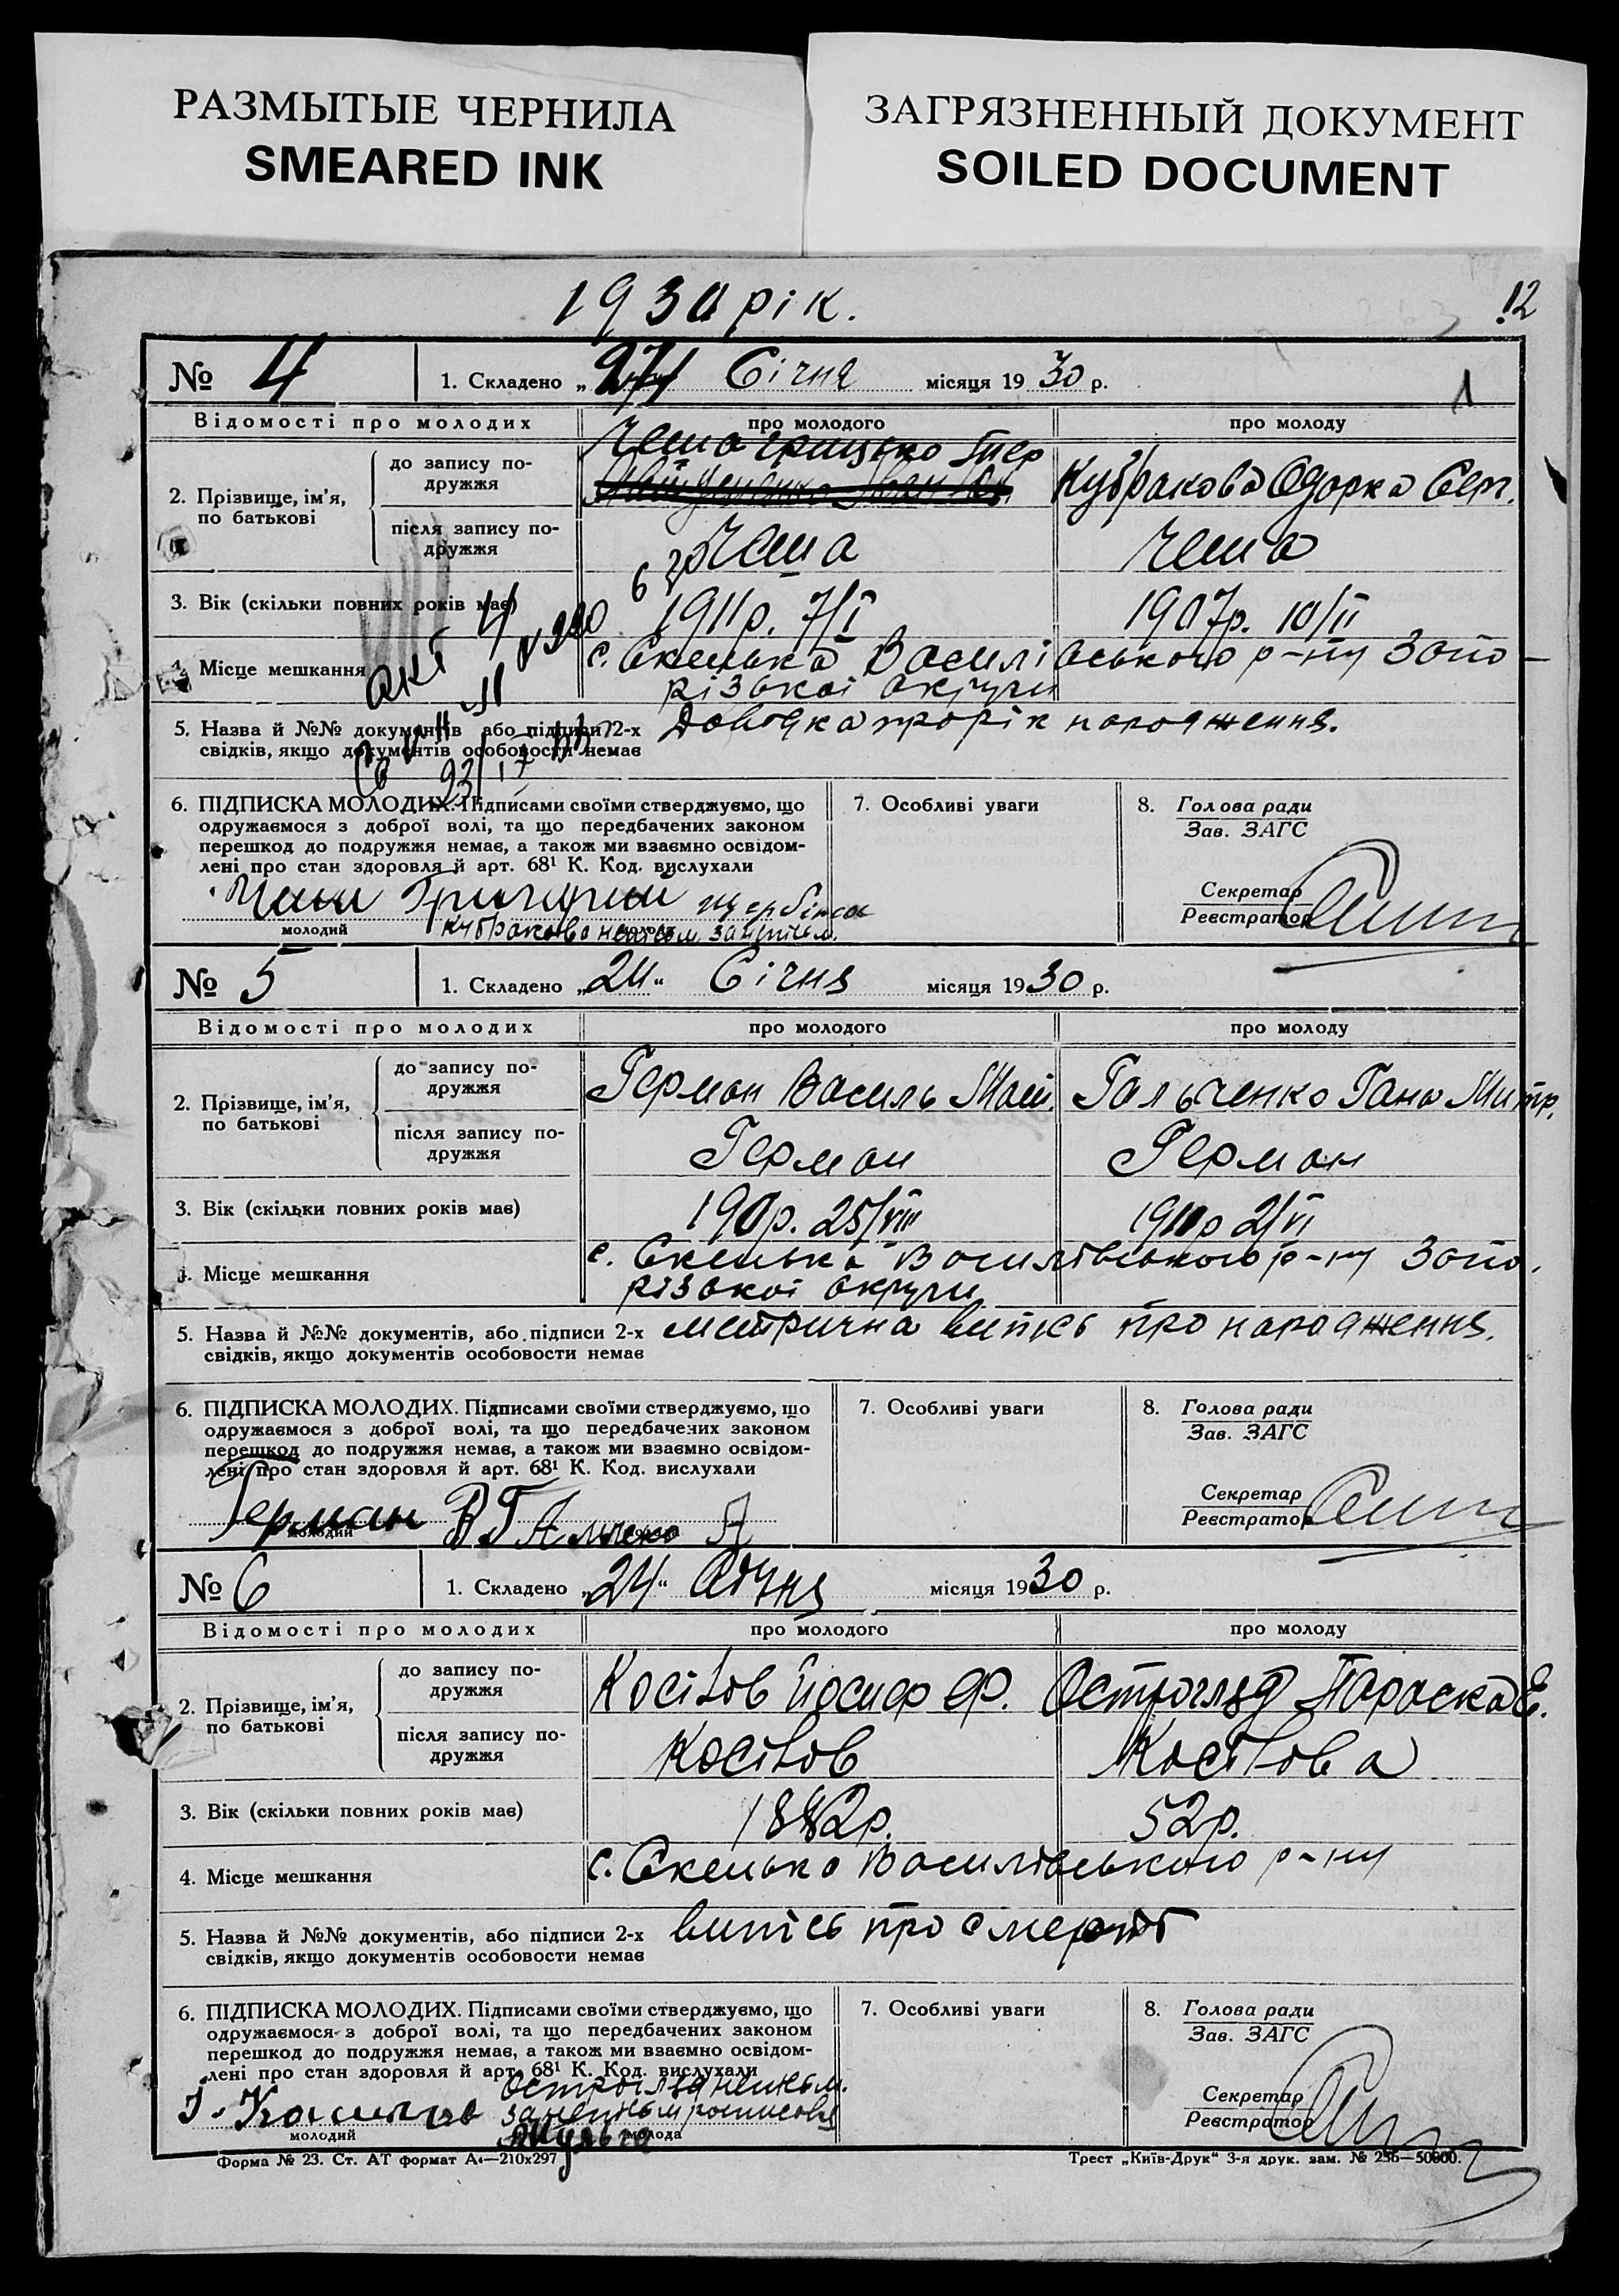 РАЗМЫТЫЕ ЧЕРНИЛА
SMEARED INK
ЗАГРЯЗНЕННЫЙ ДОКУМЕНТ
SOILED DOCUMENT
1930 рік.
12
№ 4
1. Складено „ Січня місяця 1930 р.
1
Відомості про молодих
про молодого
про молоду
2. Прізвище, ім'я, по батькові
до запису по-
дружжя
Чеша Грицько
Кубракова Одорка Серг.
після запису по-
дружжя
Чеша
Чеша
3. Вік (скільки повних років має)
1911р. 7/I
1907р. 10/II
4. Місце мешкання
с. Скелька Василівського р-ну Запо-
різької округи
5. Назва й №№ документів, або підписи 2-х
свідків, якщо документів особовости немає
Довідка про рік народження.
6. ПІДПИСКА МОЛОДИХ. Підписами своїми стверджуємо, що
одружаємося з доброї волі, та що передбачених законом
перешкод до подружжя немає, а також ми взаємно освідом-
лені про стан здоровля й арт. 68¹ К. Код. вислухали
Григорий
Щербина
Кубракова
молодий
молода
7. Особливі уваги
8. Голова ради
Зав. ЗАГС
Секретар
Реєстратор
№ 5
1. Складено „24“ Січня місяця 1930 р.
Відомості про молодих
про молодого
про молоду
2. Прізвище, ім'я, по батькові
до запису по-
дружжя
Герман Василь
Гальченко Гана Митр.
після запису по-
дружжя
Герман
Герман
3. Вік (скільки повних років має)
25/VIII
2/VI
4. Місце мешкання
с. Скелька Василівського р-ну Запо.
різької округи
5. Назва й №№ документів, або підписи 2-х
свідків, якщо документів особовости немає
метрична випісь про народження.
6. ПІДПИСКА МОЛОДИХ. Підписами своїми стверджуємо, що
одружаємося з доброї волі, та що передбачених законом
перешкод до подружжя немає, а також ми взаємно освідом-
лені про стан здоровля й арт. 68¹ К. Код. вислухали
Герман В
молодий
молода
7. Особливі уваги
8. Голова ради
Зав. ЗАГС
Секретар
Реєстратор
№ 6
1. Складено „24“ Січня місяця 1930 р.
Відомості про молодих
про молодого
про молоду
2. Прізвище, ім'я, по батькові
до запису по-
дружжя
Косілов Йосиф Ф.
Остогляд Параска Є.
після запису по-
дружжя
Косілов
Косілова
3. Вік (скільки повних років має)
1882р.
52р.
4. Місце мешкання
с. Скелька Василівського р-ну
5. Назва й №№ документів, або підписи 2-х
свідків, якщо документів особовости немає
випісь про смерть
6. ПІДПИСКА МОЛОДИХ. Підписами своїми стверджуємо, що
одружаємося з доброї волі, та що передбачених законом
перешкод до подружжя немає, а також ми взаємно освідом-
лені про стан здоровля й арт. 68¹ К. Код. вислухали
молодий
молода
7. Особливі уваги
8. Голова ради
Зав. ЗАГС
Секретар
Реєстратор
Форма № 23. Ст. АТ формат А₄—210x297
Трест „Київ-Друк“ 3-я друк. зам. № 256—50000.